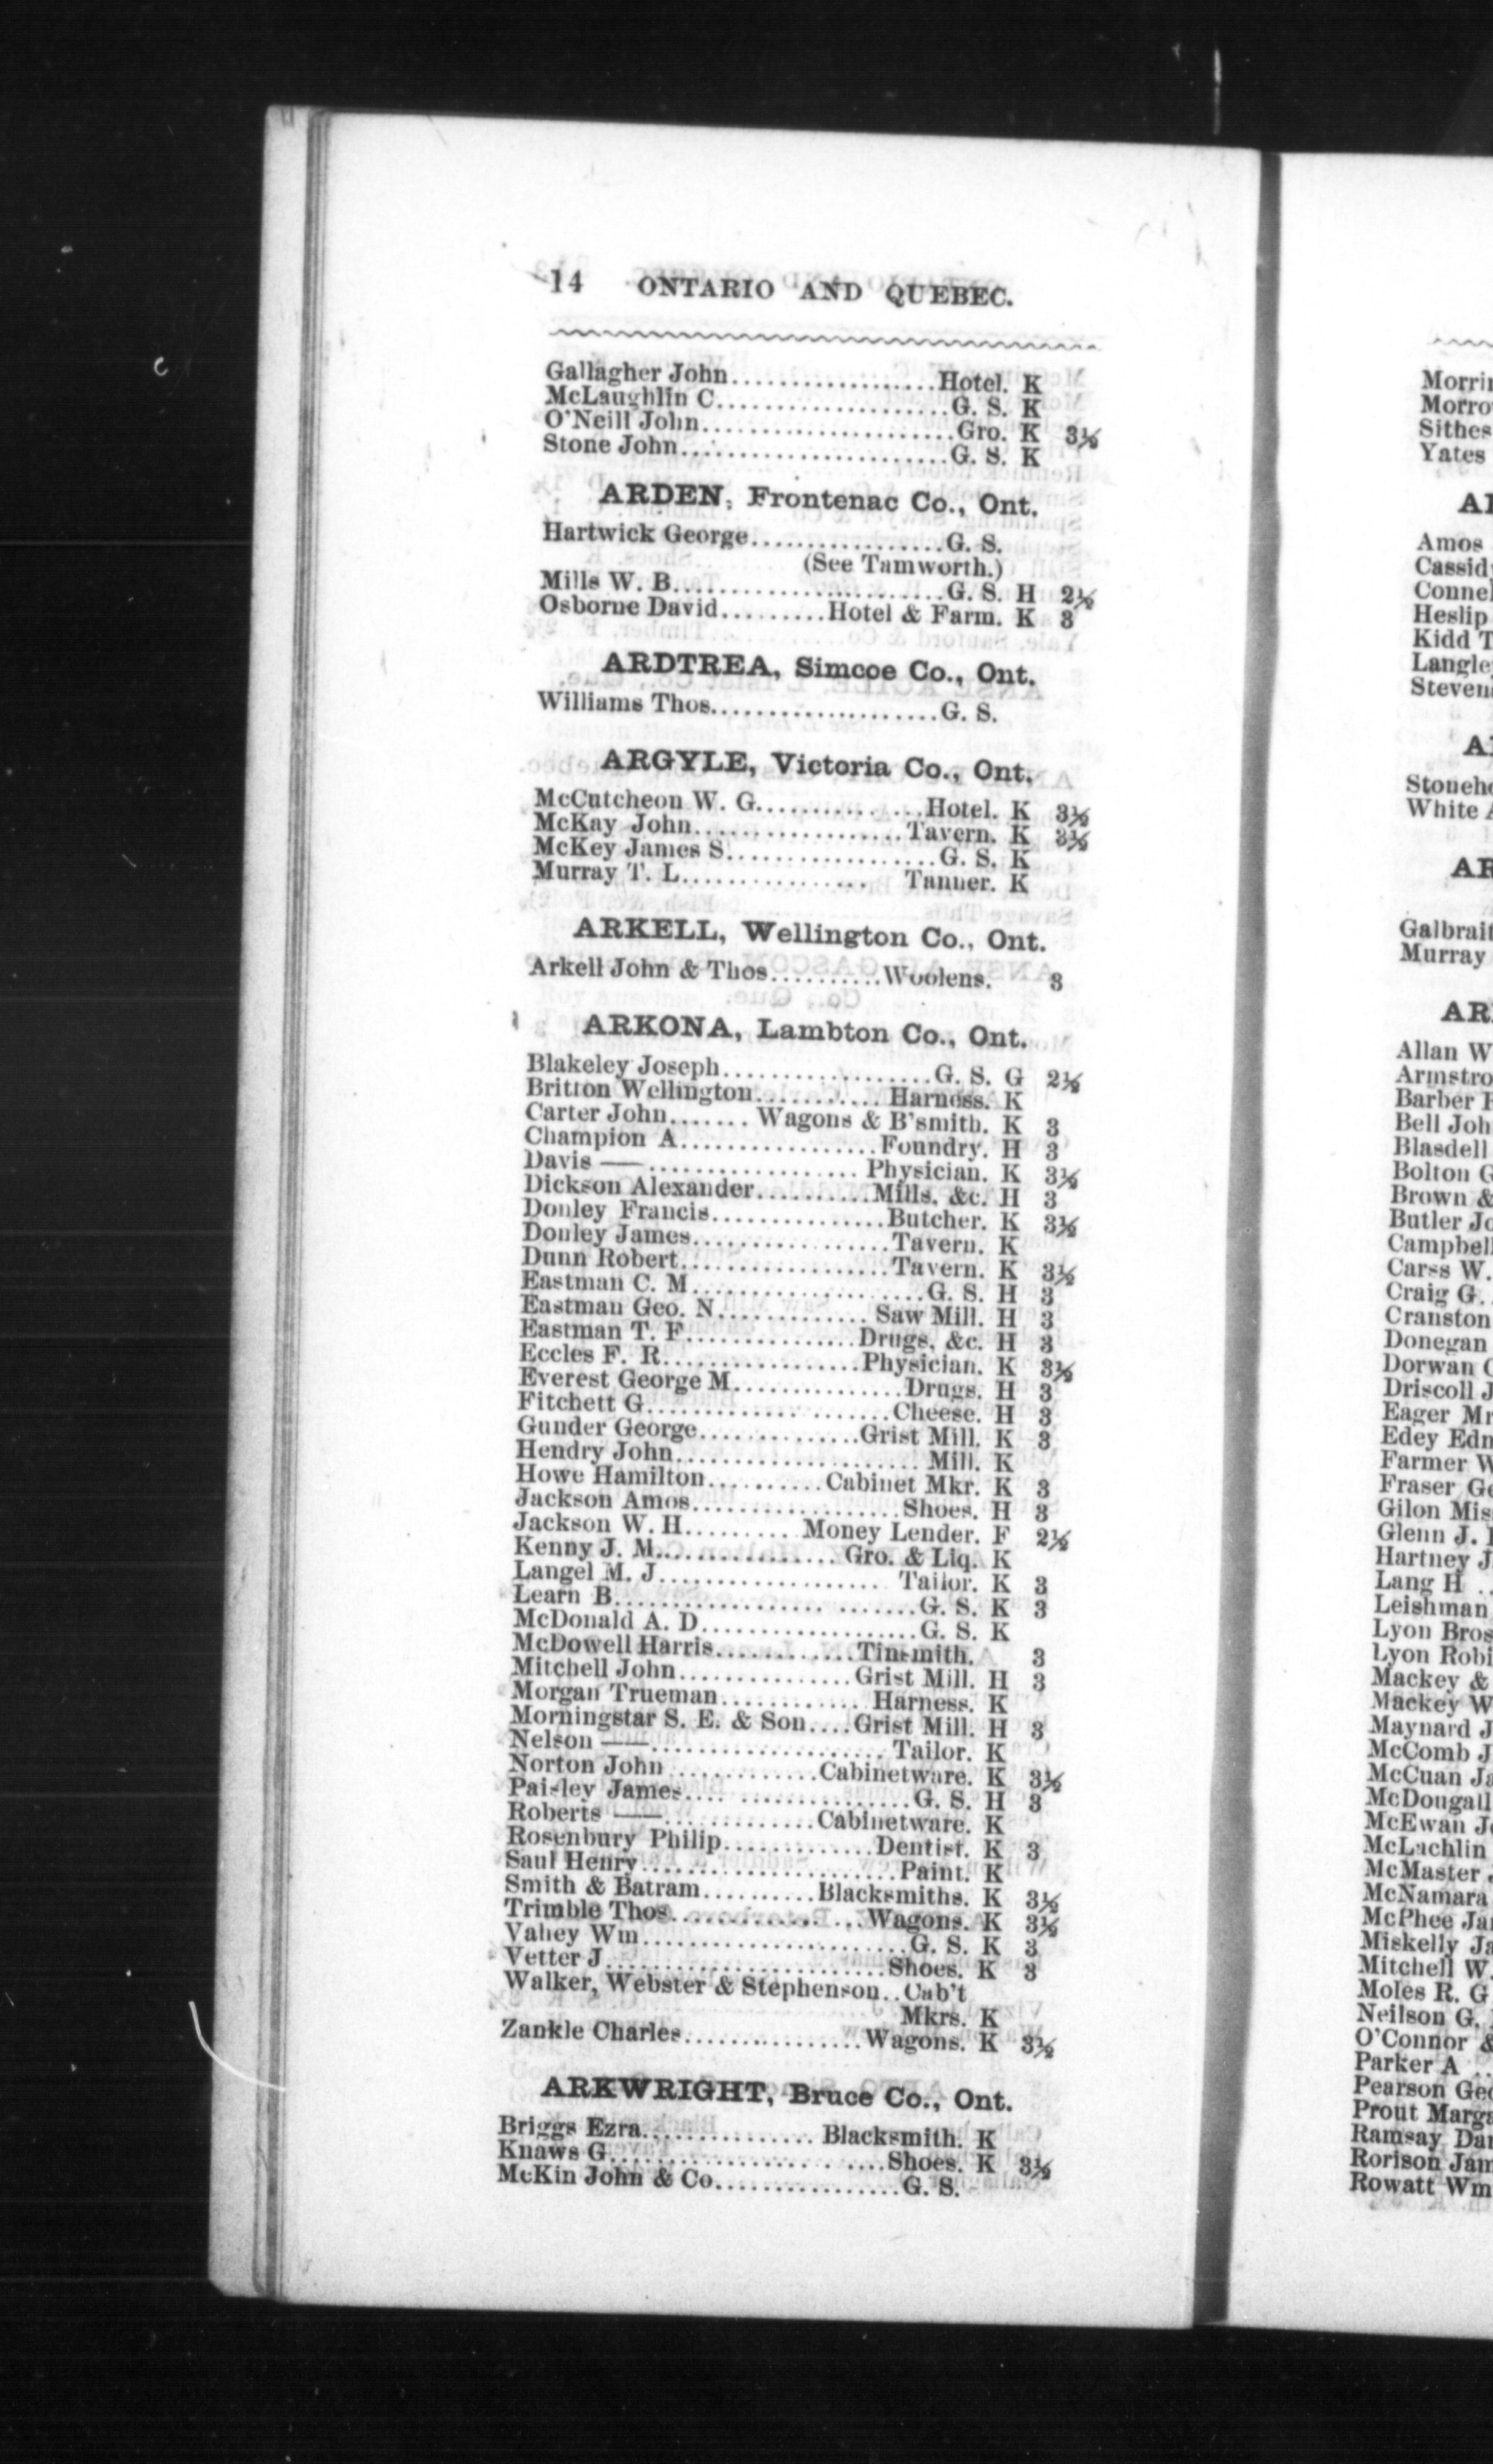 14 ONTARIO AND QUEBEC.
Gallagher John..................Hotel. K
McLaughlin C.....................G. S. K
O'Neill John.......................Gro. K 3½
Stone John........................G. S. K
ARDEN, Frontenac Co., Ont.
Hartwick George.................G. S.
(See Tamworth.)
Mills W. B........................G. S. H 2½
Osborne David.........Hotel & Farm. K 3
ARDTREA, Simcoe Co., Ont.
Williams Thos....................G. S.
ARGYLE, Victoria Co., Ont.
McCutcheon W. G...............Hotel. K 3½
McKay John...................Tavern. K 3½
McKey James S..................G. S. K
Murray T. L................ Tanner. K
ARKELL, Wellington Co., Ont.
Arkell John & Thos..........Woolens. 3
ARKONA, Lambton Co., Ont.
Blakeley Joseph...................G. S. G 2½
Britton Wellington...........Harness. K
Carter John....... Wagons & B'smith. K 3
Champion A.................Foundry. H 3
Davis ——................... Physician. K 3½
Dickson Alexander..........Mills, &c. H 3
Donley Francis...............Butcher. K 3½
Donley James.................Tavern. K
Dunn Robert..................Tavern. K 3½
Eastman C. M....................G. S. H 3
Eastman Geo. N............. Saw Mill. H 3
Eastman T. F...............Drugs, &c. H 3
Eccles F. R.................Physician. K 3½
Everest George M...............Drugs. H 3
Fitchett G......................Cheese. H 3
Gunder George..............Grist Mill. K 3
Hendry John...................... Mill. K
Howe Hamilton..........Cabinet Mkr. K 3
Jackson Amos...................Shoes. H 3
Jackson W. H......... Money Lender. F 2½
Kenny J. M................Gro. & Liq. K
Langel M. J.................... Tailor. K 3
Learn B...........................G. S. K 3
McDonald A. D...................G. S. K
McDowell Harris............Tinsmith. 3
Mitchell John...............Grist Mill. H 3
Morgan Trueman............ Harness. K
Morningstar S. E. & Son....Grist Mill. H 3
Nelson ——..................... Tailor. K
Norton John .............Cabinetware. K 3½
Paisley James....................G. S. H 3
Roberts —— .............Cabinetware. K
Rosenbury Philip.............Dentist. K 3
Saul Henry.......................Paint. K
Smith & Batram..........Blacksmiths. K 3½
Trimble Thos..................Wagons. K 3½
Vahey Wm.......................G. S. K 3
Vetter J..........................Shoes. K 3
Walker, Webster & Stephenson..Cab't
Mkrs. K
Zankle Charles................Wagons. K 3½
ARKWRIGHT, Bruce Co., Ont.
Briggs Ezra............... Blacksmith. K
Knaws G........................Shoes. K 3½
McKin John & Co.................G. S.
Morro
Sithes
Yates
Amos
Galbrait
Murray
Allan W
Bell Joh
Blasdell
Bolton G
Brown &
Butler Jo
Campbell
Carss W.
Craig G..
Cranston
Donegan
Dorwan C
Driscoll J
Eager Mr
Edey Edn
Farmer W
Fraser Ge
Gilon Mis
Glenn J.
Hartney J
Lang H ..
Leishman
Lyon Bros
Lyon Robi
Mackey &
Mackey W
Maynard J
McComb J
McCuan Ja
McDougall
McEwan J
McLachlin
McMaster
McNamara
McPhee Ja
Miskelly Ja
Mitchell W.
Moles R. G
Neilson G.
O'Connor &
Parker A ..
Pearson Geo
Prout Marga
Ramsay Da
Rorison Jam
Rowatt Wm